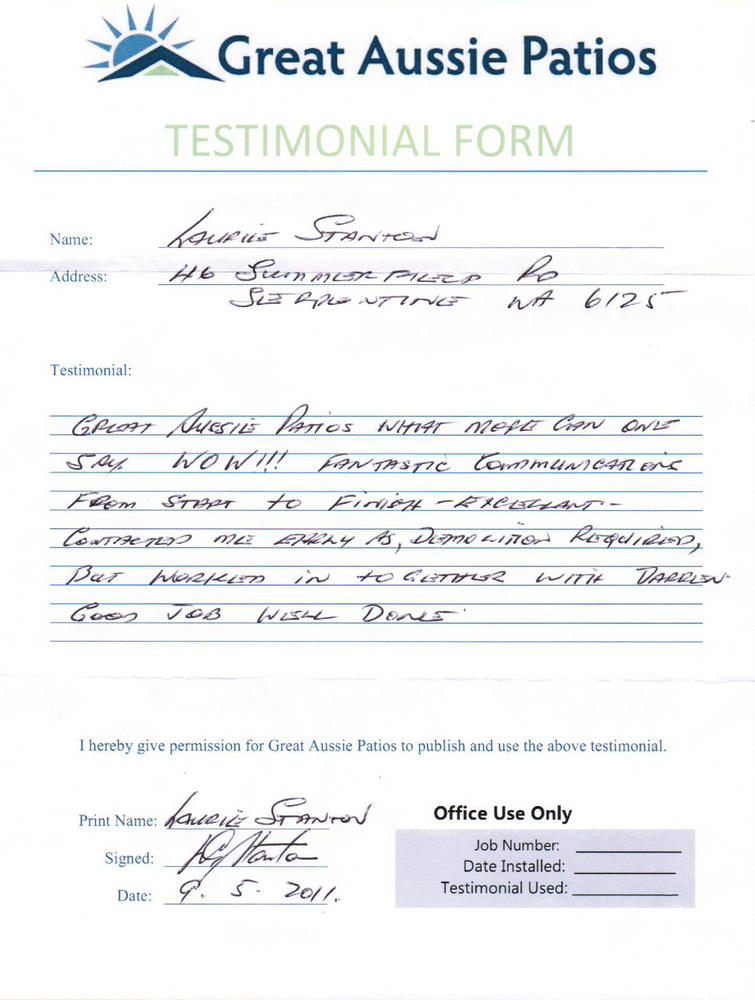 Great Aussie Patios
TESTIMONIAL FORM
Name: LAURIE STANTON
Address: 46 SUMMERFIELD RD
SERPENTINE WA 6125
Testimonial:
GREAT AUSSIE PATIOS WHAT MORE CAN ONE
SAY. WOW!!! FANTASTIC COMMUNICATIONS
FROM START TO FINISH - EXCELLANT -
CONTACTED ME EARLY AS, DEMOLITION REQUIRED,
BUT WORKED IN TOGETHER WITH DARREN.
GOOD JOB WELL DONE.
I hereby give permission for Great Aussie Patios to publish and use the above testimonial.
Print Name: LAURIE STANTON
Signed: Stanton
Date: 9. 5. 2011.
Office Use Only
Job Number:
Date Installed:
Testimonial Used: